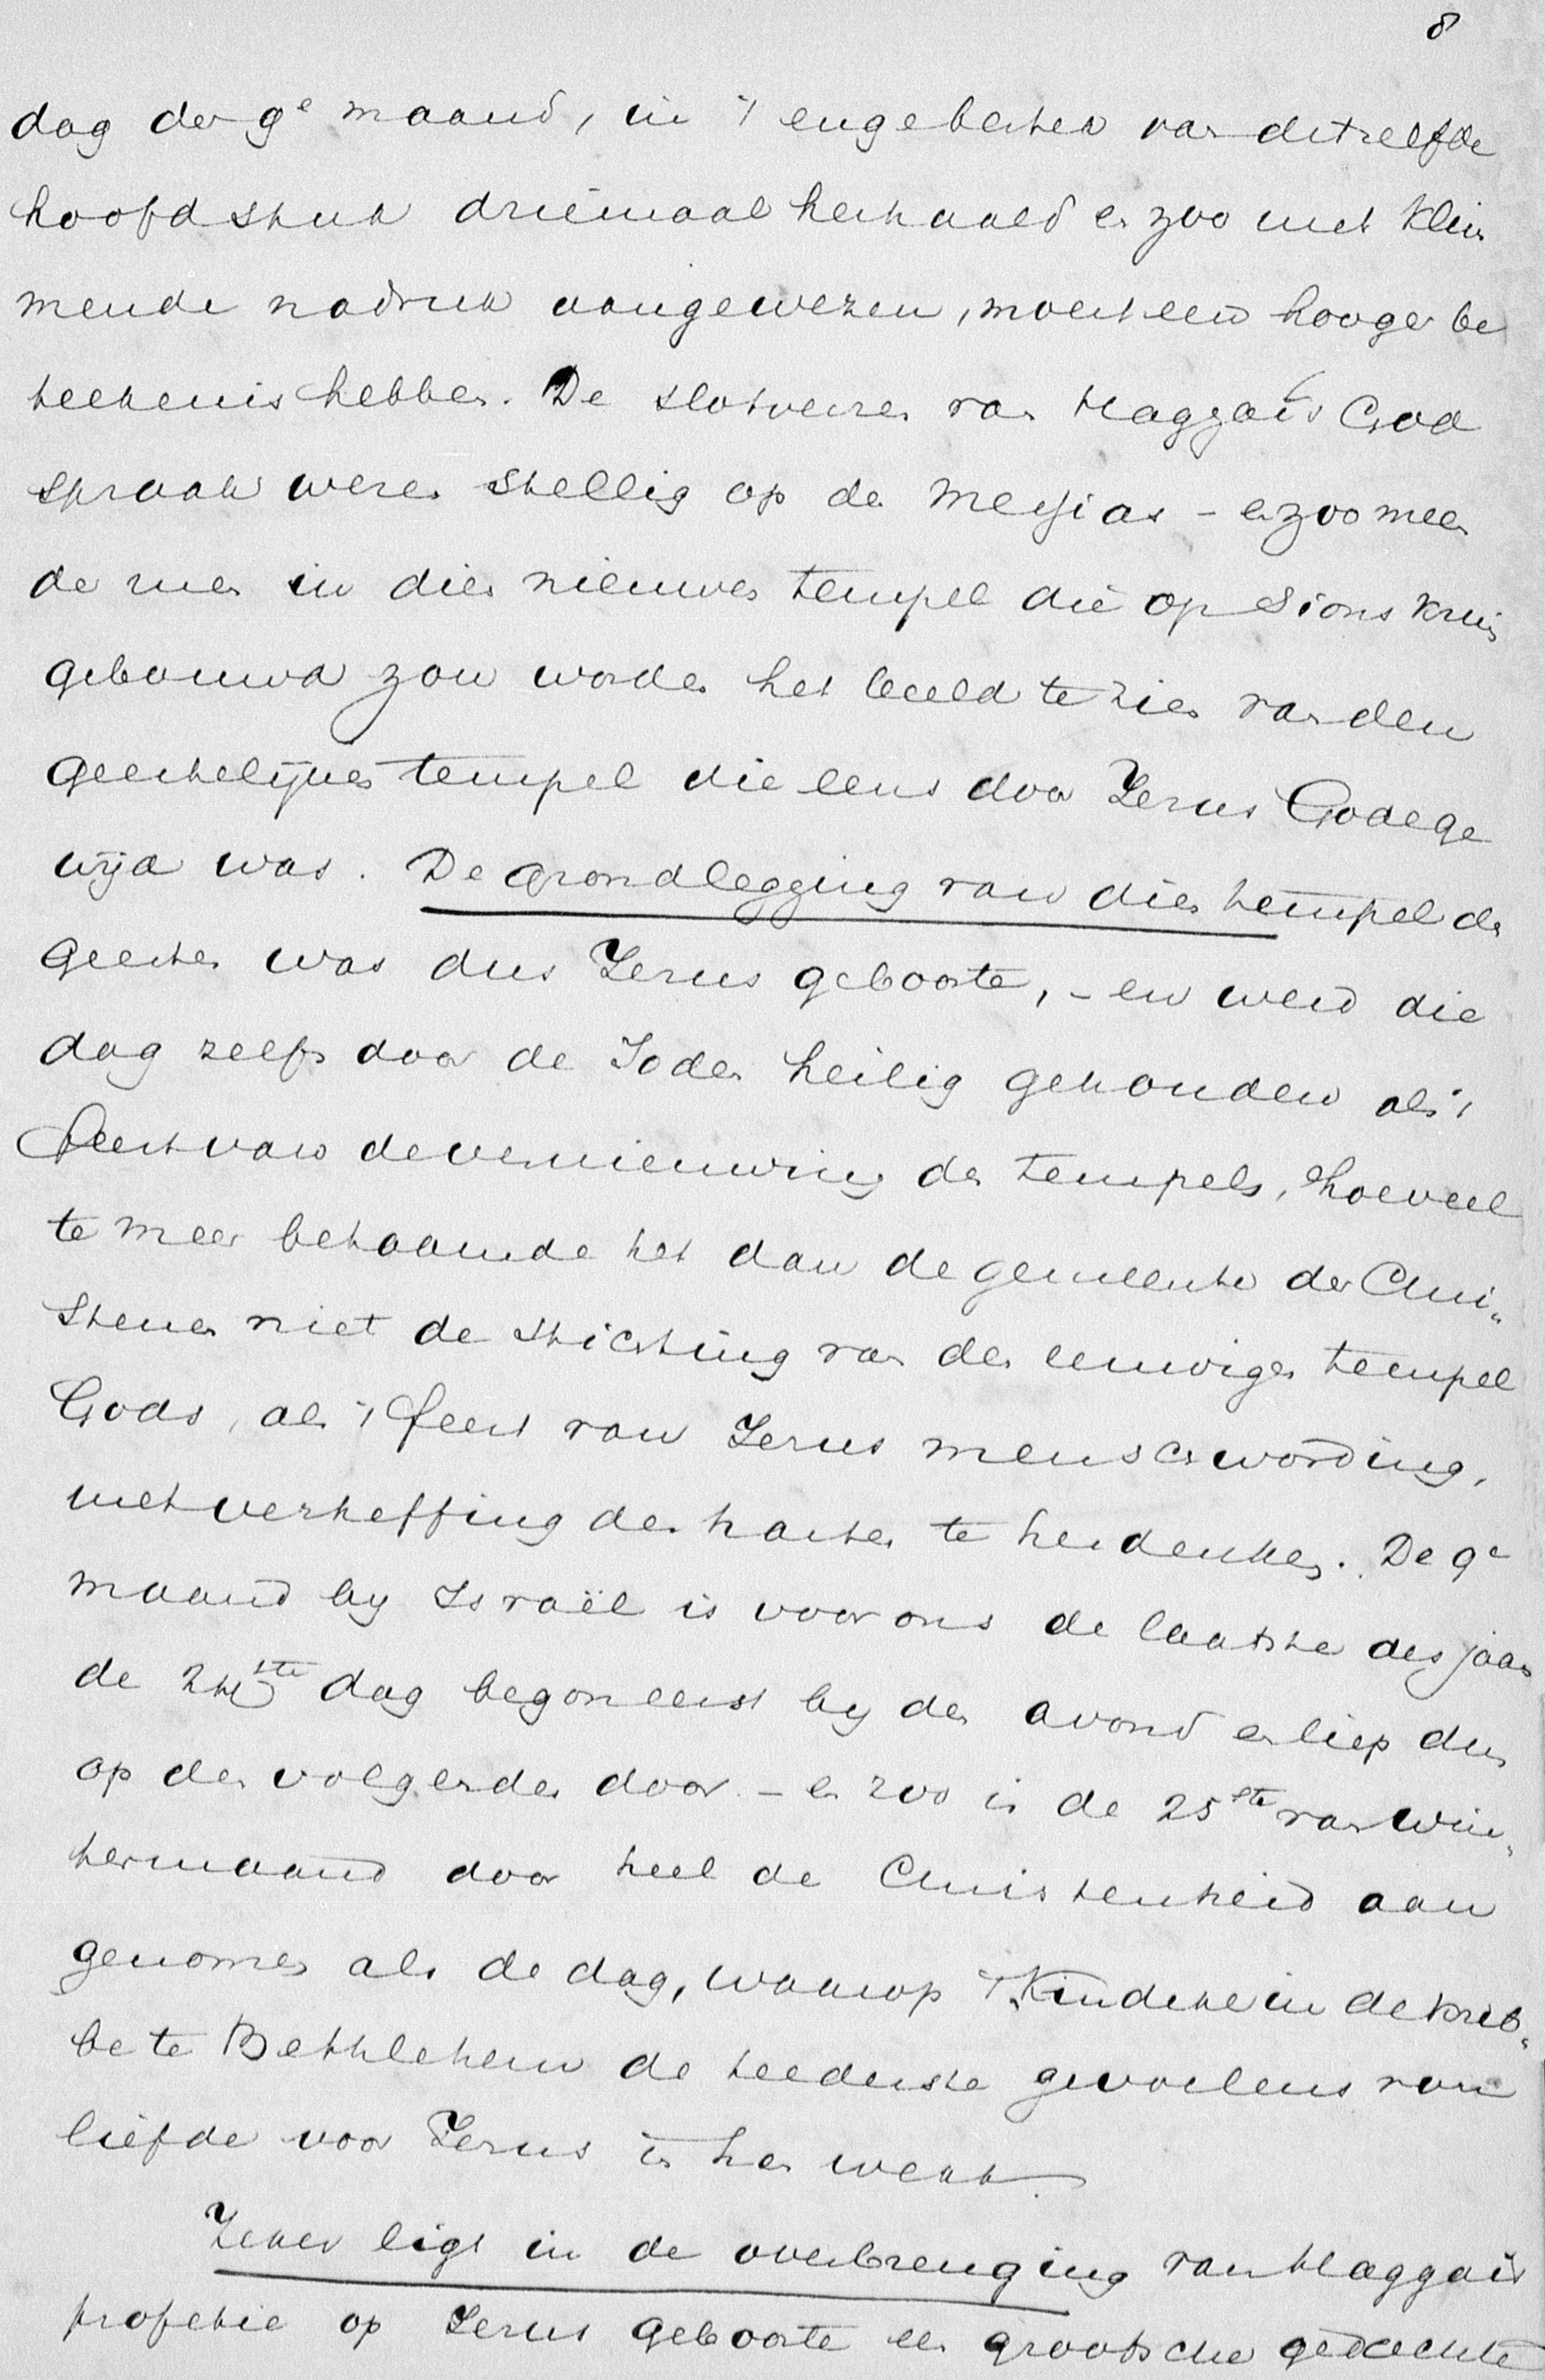 8
dag der 9e maand, in 't engebestek van ditzelfde
hoofdstuk driemaal herhaald en zoo met klem
mende nadruk aangewezen, moest een hooger be
teekenis hebben. De slotverzen van Haggaï's God
spraak wezen stellig op den Messias - en zoo meen
de men in dien nieuwen tempel die op Sions kruin
gebouwd zou worden het beeld te zien van den
geestelijken tempel die eens door Jezus Gode ge
wijd was. De grondlegging van dien tempel des
geestes was dus Jezus geboorte, - en werd die
dag zelfs door de Joden heilig gehouden als 't
feest van de vernieuwing des tempels, hoeveel
te meer betaamde het dan de gemeente der Chri"
stenen niet de stichting van den eeuwigen tempel
Gods, als 't feest van Jezus menschwording,
met verheffing des harten te herdenken. De 9e
maand by Israël is voor ons de laatste des jaars
de 24ste dag begon eerst by den avond en liep dus
op den volgenden door - en zoo is de 25ste van Win"
termaand door heel de Christenheid aan
genomen als de dag, waarop 't Kindeke in de krib"
be te Bethlehem de teederste gevoelens van
liefde voor Jezus in hen wekt.
Zeker ligt in de overbrenging van Haggaïs
profetie op Jezus geboorte een grootsche gedachte